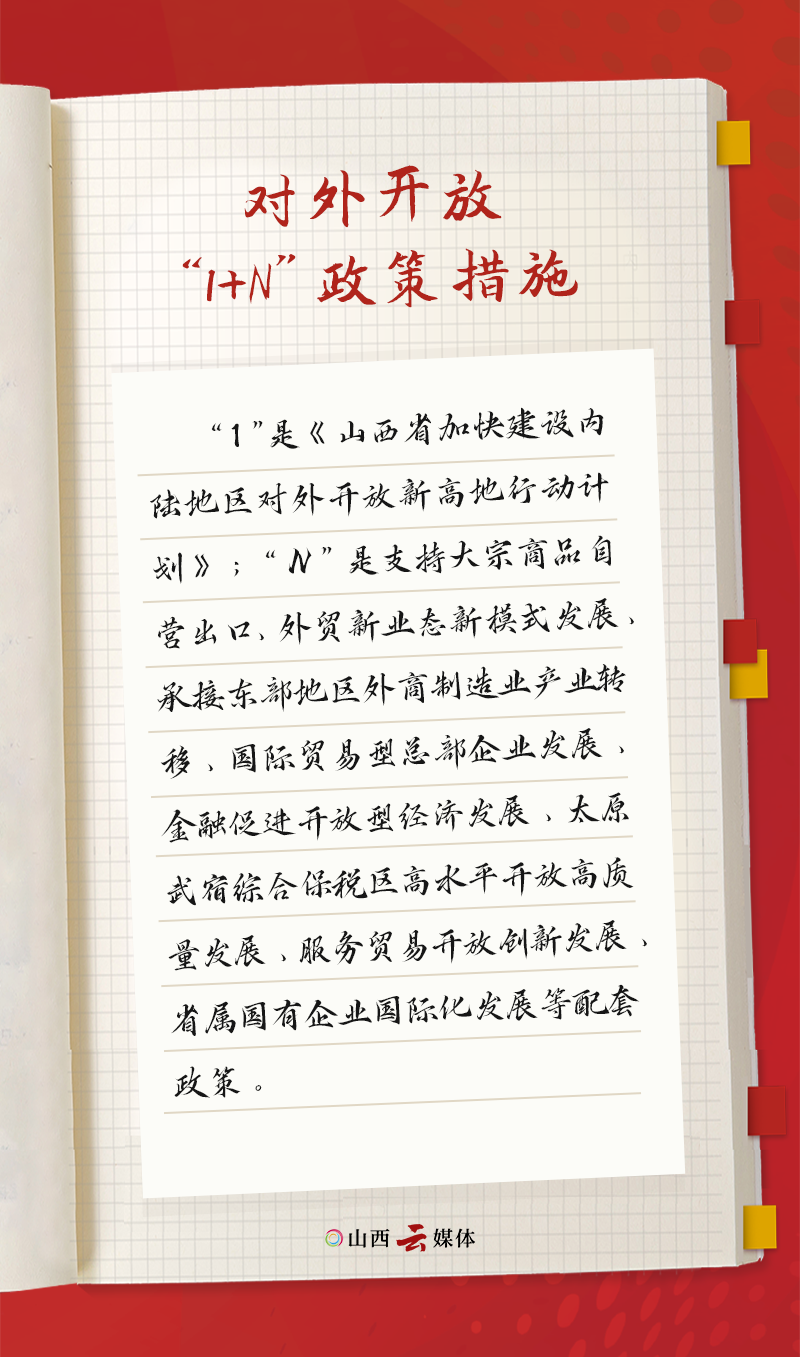 对外开放
“1+N”政策措施
“1”是《山西省加快建设内
陆地区对外开放新高地行动计
划》；“N”是支持大宗商品自
营出口、外贸新业态新模式发展、
承接东部地区外商制造业产业转
移、国际贸易型总部企业发展、
金融促进开放型经济发展、太原
武宿综合保税区高水平开放高质
量发展、服务贸易开放创新发展、
省属国有企业国际化发展等配套
政策。
山西云媒体